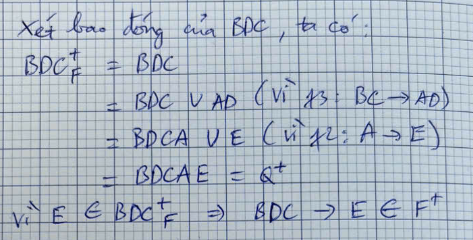 Xét bao đóng của BDC, ta có:
BDC⁺F = BDC
= BDC ∪ AD (vì f3: BC → AD)
= BDCA ∪ E (vì f2: A → E)
= BDCAE = Q⁺
Vì E ∈ BDC⁺F ⇒ BDC → E ∈ F⁺